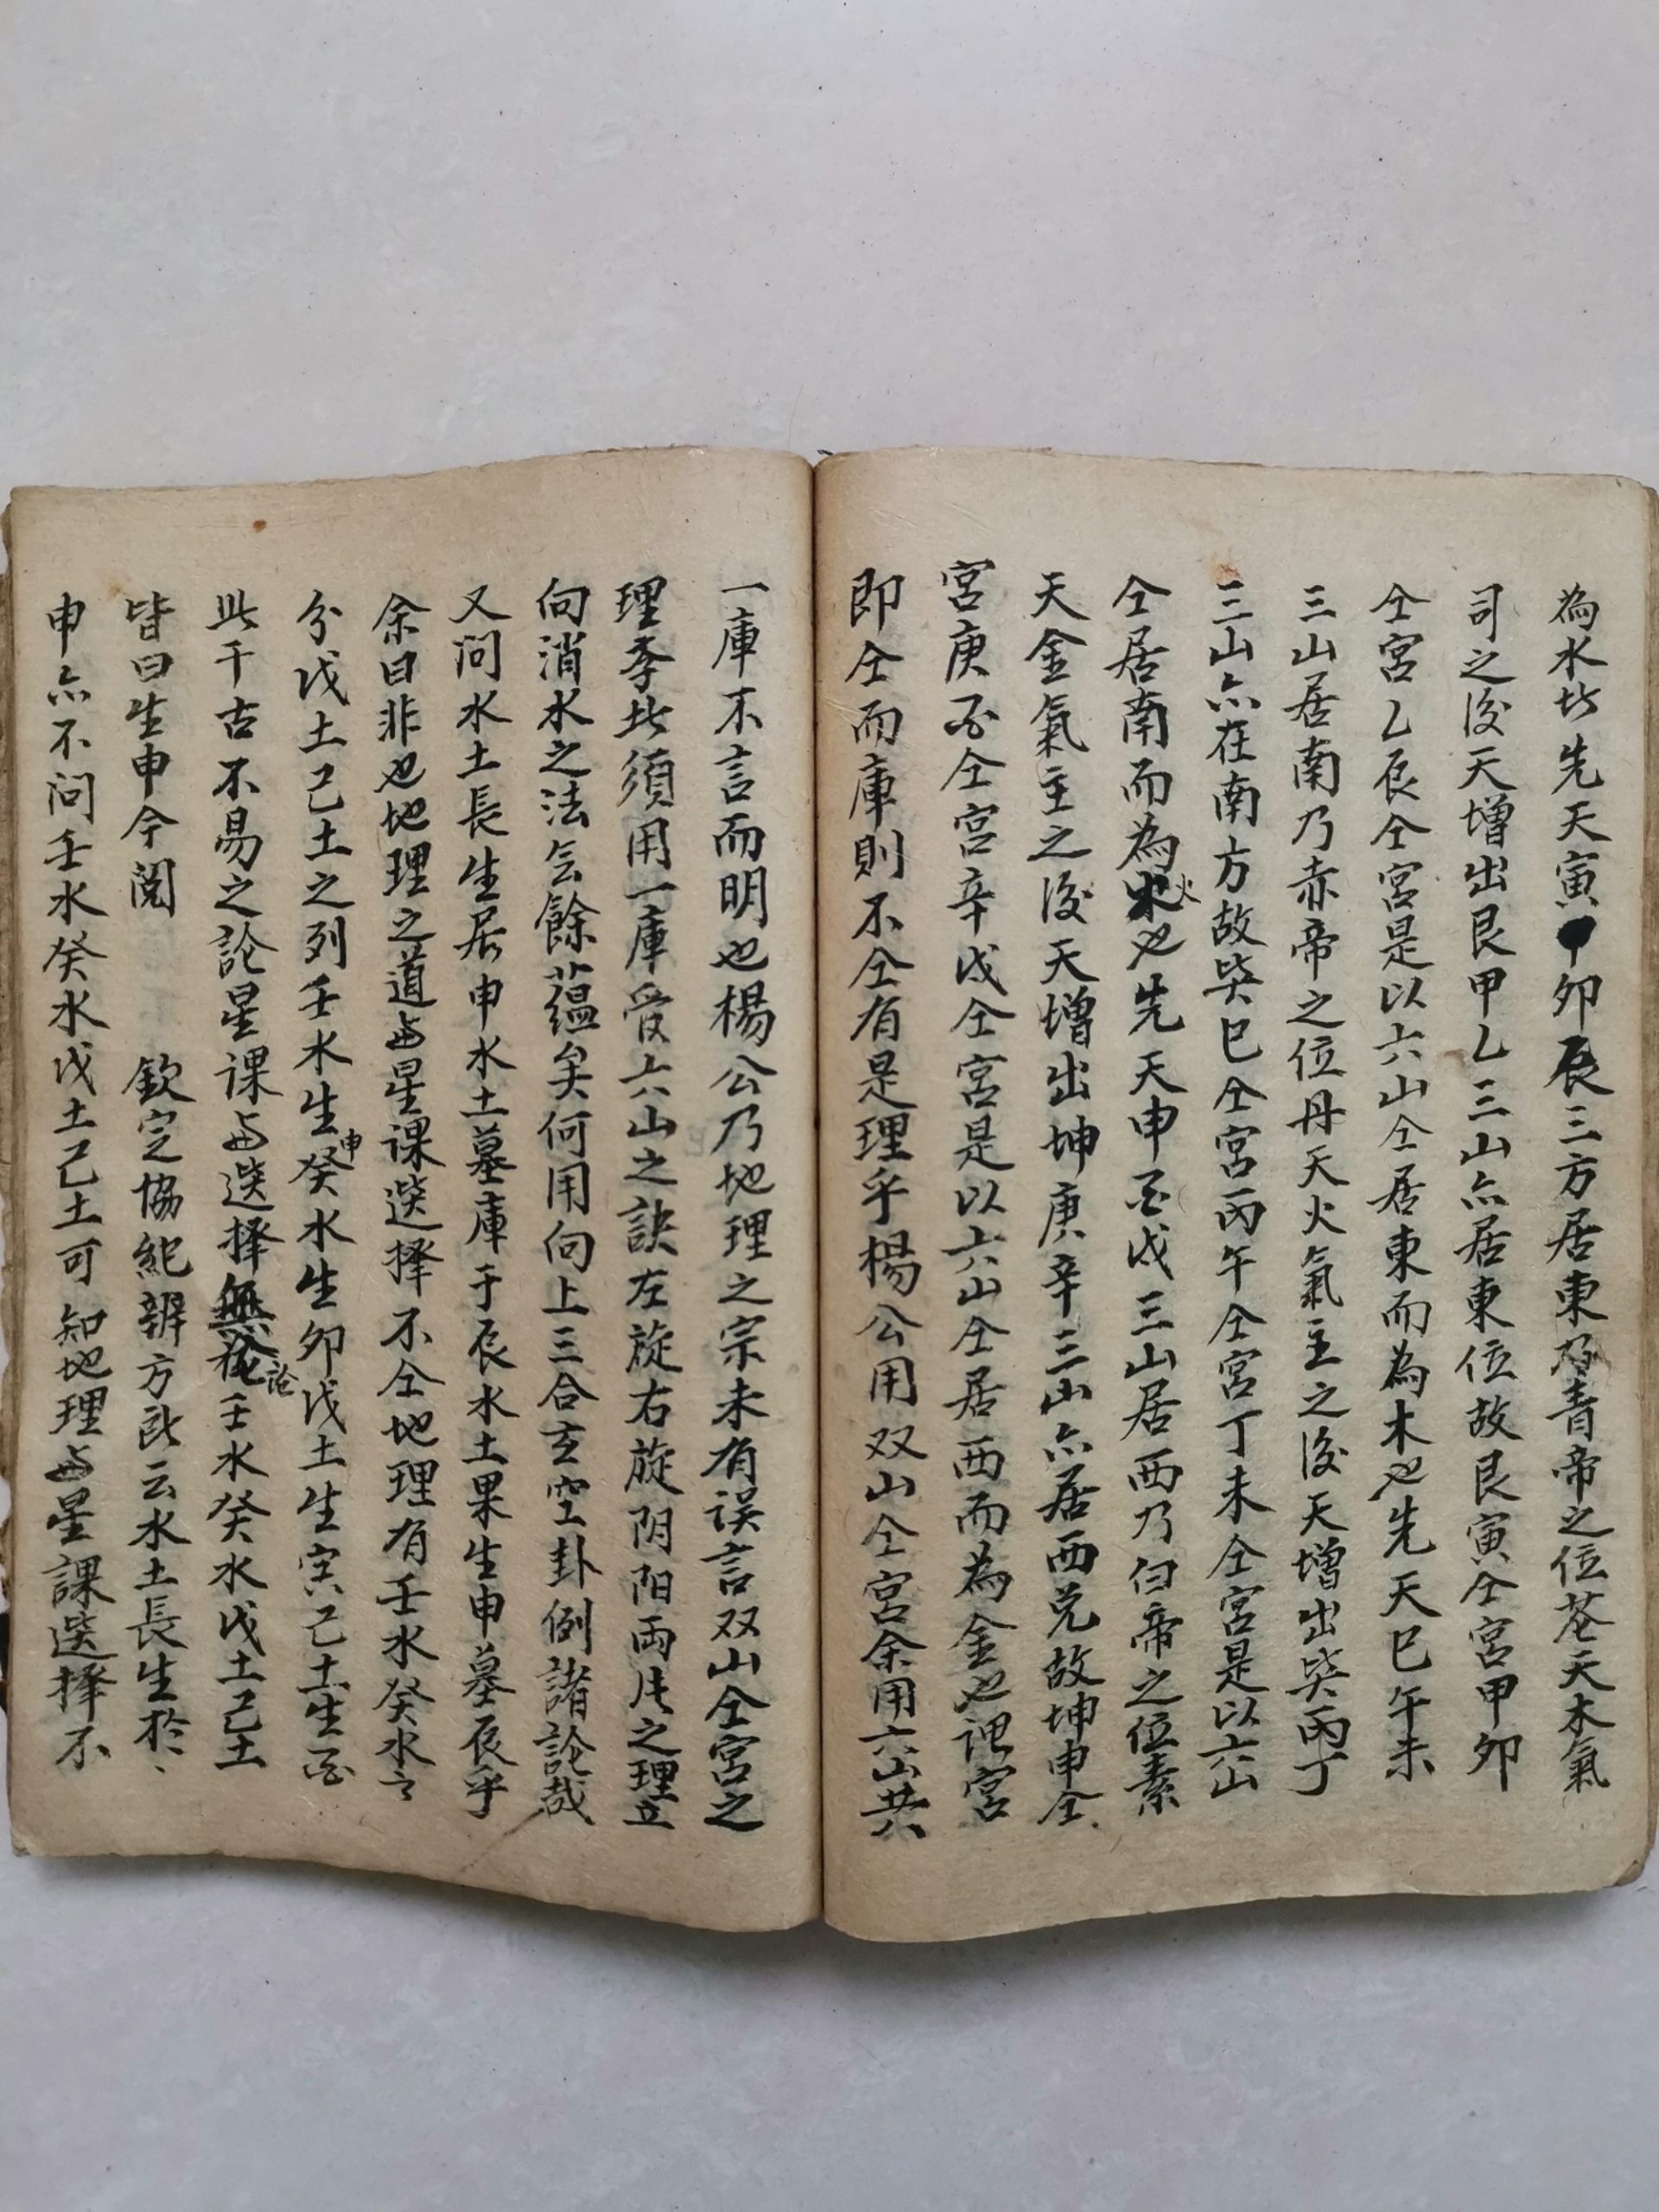 為水也先天寅卯辰三方居東乃青帝之位苍天木氣
司之後天增出艮甲乙三山亦居東位故艮寅仝宮甲卯
仝宮乙辰仝宮是以六山仝居東而為木也先天巳午未
三山居南乃赤帝之位丹天火氣主之後天增出巽丙丁
三山亦在南方故巽巳仝宮丙午仝宮丁未仝宮是以六山
仝居南而為火也先天申酉戌三山居西乃白帝之位素
天金氣主之後天增出坤庚辛三山亦居西兌故坤申仝
宮庚酉仝宮辛戌仝宮是以六山仝居西而為金也宮
即仝而庫則不仝有是理乎楊公用双山仝宮余用六山共
一庫不言而明也楊公乃地理之宗未有误言双山仝宮之
理季此須用一庫受六山之訣左旋右旋阴阳両片之理立
向消水之法
餘蕴矣何用向上三合玄空卦例諸論哉
又問水土長生居申水土墓庫于辰水土果生申墓辰乎
余曰非也地理之道与星课选择不仝地理有壬水癸水之
分戊土己土之列壬水生申癸水生卯戊土生寅己土生酉
此千古不易之論星课与选择無論壬水癸水戊土己土
皆曰生申今閱 欽定協紀辨方
云水土長生於
申亦不问壬水癸水戊土己土可知地理与星課选择不